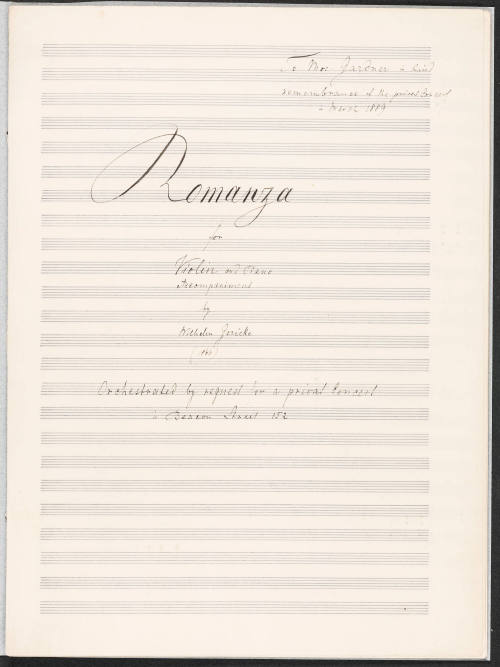 To Mrs Gardner in kind
remembrance of the privat Concert
in March 1889
Romanza
for
Violin and Piano
Accompaniment
by
Wilhelm Gericke
Orchestrated by request for a privat Concert
in Beacon Street 152